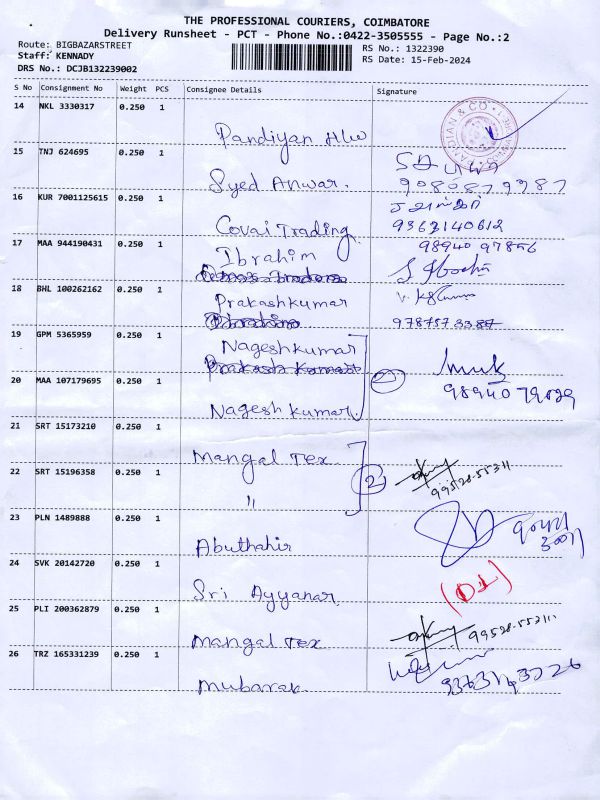 THE PROFESSIONAL COURIERS, COIMBATORE
Delivery Runsheet - PCT - Phone No.:0422-3505555 - Page No.:2
Route: BIGBAZARSTREET
RS No.: 1322390
Staff: KENNADY
RS Date: 15-Feb-2024
DRS No.: DCJB132239002
S No Consignment No Weight PCS Consignee Details Signature
14 NKL 3330317 0.250 1
Pandiyan H/w
15 TNJ 624695 0.250 1
Syed Anwar.
16 KUR 7001125615 0.250 1
Covai Trading
9362140612
17 MAA 944190431 0.250 1
Ibrahim
98940 97856
18 BHL 100262162 0.250 1
Prakashkumar
19 GPM 5365959 0.250 1
Nageshkumar
20 MAA 107179695 0.250 1
Nagesh kumar
2
21 SRT 15173210 0.250 1
Mangal Tex
22 SRT 15196358 0.250 1
"
2
99528-55311
23 PLN 1489888 0.250 1
Abuthahir
24 SVK 20142720 0.250 1
Sri Ayyanar
25 PLI 200362879 0.250 1
Mangal Tex
26 TRZ 165331239 0.250 1
mubarak